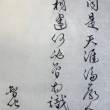 同是天涯淪落
人相逢何必曾相識